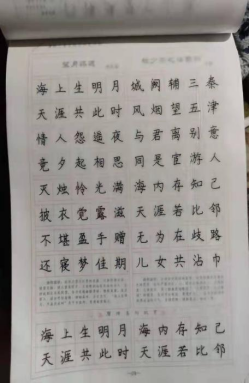 望月怀远
海上生明月 城阙辅三秦
天涯共此时 风烟望五津
情人怨遥夜 与君离别意
竟夕起相思 同是宦游人
灭烛怜光满 海内存知己
披衣觉露滋 天涯若比邻
不堪盈手赠 无为在歧路
还寝梦佳期 儿女共沾巾
海上生明月 海内存知己
天涯共此时 天涯若比邻